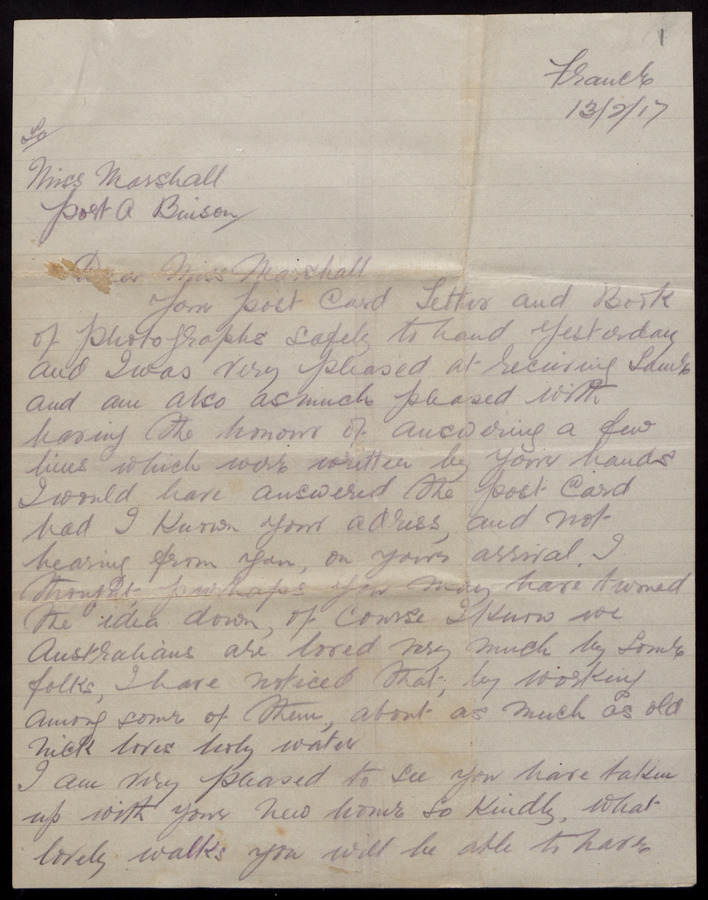 1
France
13/2/17
to
Miss Marshall
post O Binson
Dear Miss Marshall
Your post Card Letter and Book
of photographs safely to hand yesterday
and I was very pleased at recieving same
and am also as much pleased with
having the honour of answering a few
lines which were written by your hands
I would have answered the post Card
had I known your adress, and not
hearing from you, on your arrival. I
thought purhaps you may have turned
the idea down, of course I know we
Australians are loved very much by some
folks, I have noticed that, by working
among some of them, about as much as old
Nick loves holy water
I am very pleased to see you have taken
up with your new home so kindly, what
lovely walks you will be able to have